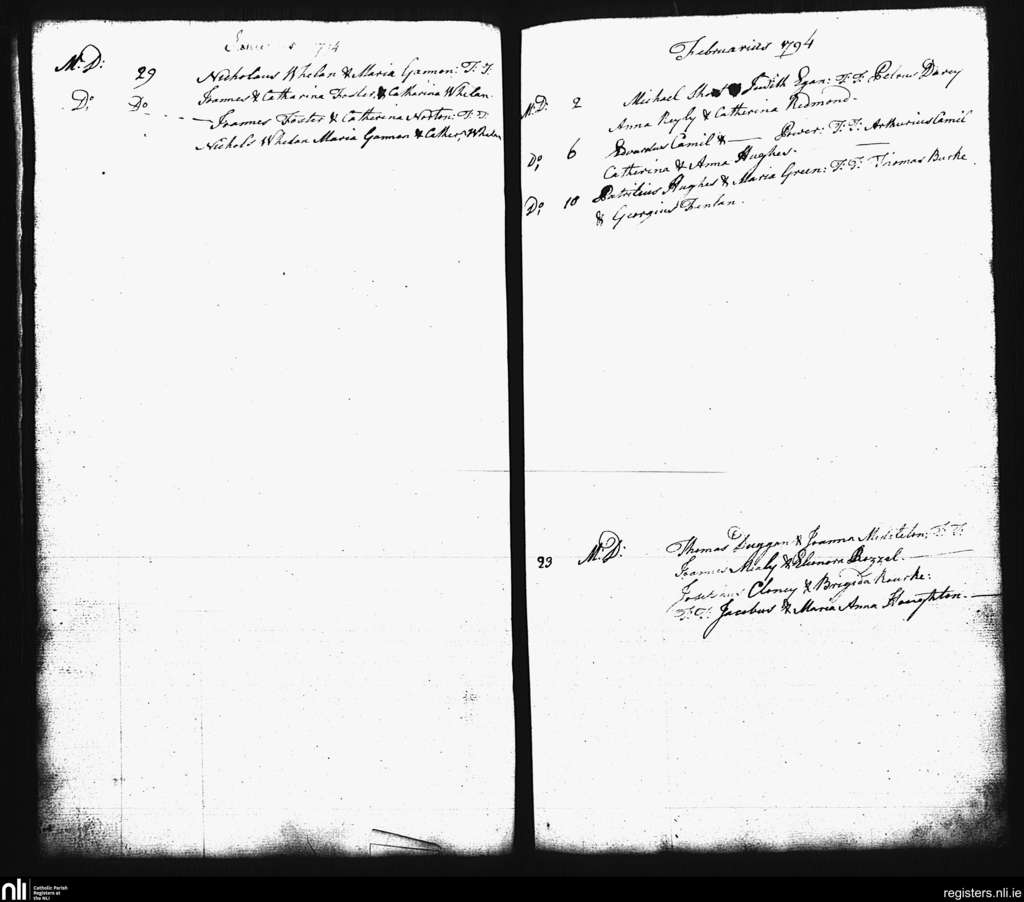 1794
M: D: 29 Nicholaus Whelan & Maria Gannon: T: T:
Joannes & Catharina Foster, & Catharina Whelan.
Do: Do - - - - Joannes Foster & Catherina Norton: T: T:
Nichols Whelan Maria Gannon & Cather: Whelan
Februarius 1794
M: D: 2 Michael & Judith Egan: T: T: Petrus Darcy
Anna Reyly & Catherina Redmond.
Do; 6 Edvardus Camil & — Power: T: T: Arthurius Camil
Catherina & Anna Hughes.
Do; 10 Patritius Hughes & Maria Green: T: T: Thomas Burke
& Georgius Fenlan.
23 M: D: Thomas Duggan & Joanna: T: T:
Joannes Mealy & Elenora
Cloney & Brigida Rourke:
T: T: Jacobus & Maria Anna Houghton.
nli
Catholic Parish
Registers at
the NLI
registers.nli.ie